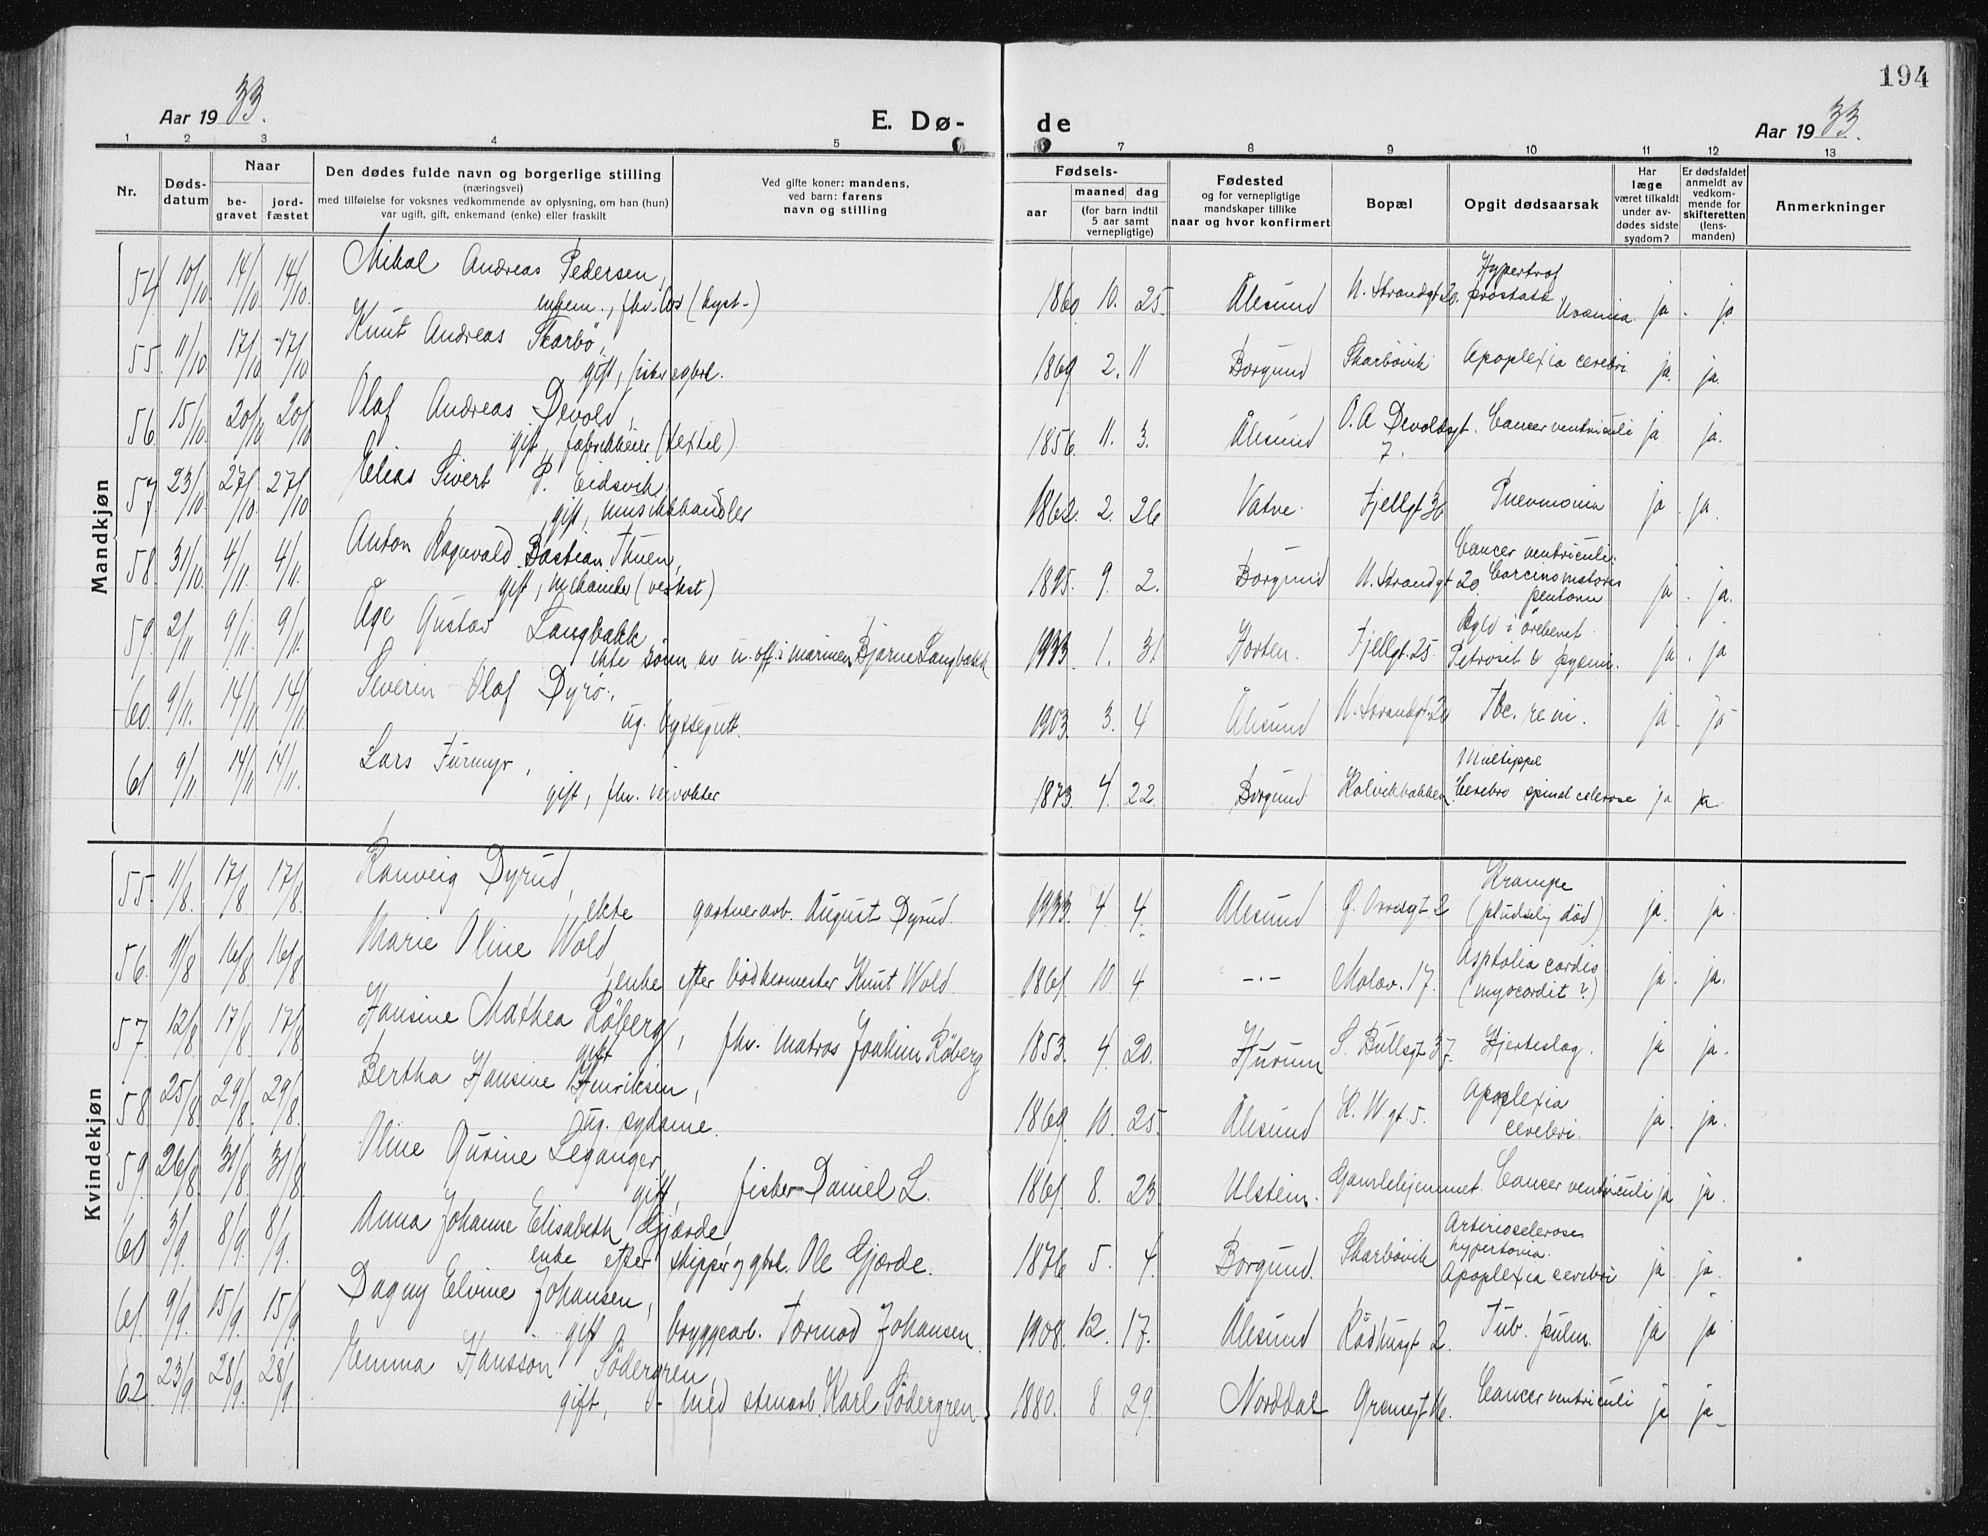 194
Aar 1933.
E. Dø-
de
Aar 1933.
1 2 3 4 5 7 8 9 10 11 12 13
Nr.
Døds-
datum
Naar
be-
gravet
jord-
fæstet
Den dødes fulde navn og borgerlige stilling
(næringsvei)
med tilføielse for voksnes vedkommende av oplysning, om han (hun)
var ugift, gift, enkemand (enke) eller fraskilt
Ved gifte koner: mandens,
ved barn: farens
navn og stilling
Fødsels-
aar
maaned
dag
(for barn indtil
5 aar samt
vernepligtige)
Fødested
og for vernepligtige
mandskaper tillike
naar og hvor konfirmert
Bopæl
Opgit dødsaarsak
Har
læge
været tilkaldt
under av-
dødes sidste
sygdom?
Er dødsfaldet
anmeldt av
vedkom-
mende for
skifteretten
(lens-
manden)
Anmerkninger
Mandkjøn
54 10/10 14/10 14/10 Mikal Andreas Pedersen, 1860. 10. 25. Ålesund N. Strandgt 20. Hypertrof
prostata
Uræmia. ja. ja
55. 11/10. 17/10 17/10. Knut Andreas Skarbø, 1869 2. 11 Borgund Skarbøvik Apoplexia cerebri. ja. ja.
gift, fisker og brl.
56 15/10. 20/10. 20/10 Olaf Andreas Devold, 1856. 11. 3. Ålesund O. A Devoldsgt. Cancer ventriculi ja ja.
gift, fabrikkeier (textil) 7.
57 23/10 27/10. 27/10 Elias Sivert P. Eidsvik, 1862. 2. 26 Vatne. Fjellgt 36 Pneumonia ja. ja.
gift, musikkhandler
58. 31/10. 4/11. 4/11. Anton Ragnvald Bastian Thuen, 1895. 9. 2. Borgund N. Strandgt 20. Cancer ventriculi.
Carcinomatosis ja. ja.
gift, mekaniker (verkst)
59. 2/11 9/11. 9/11. Åge Gustav Langbakk 1933. 1. 31 Horten. Fjellgt. 25. Byld i ørebenet.
Petrosit & pyemi. ja. ja
ekte sønn av u. off. i marinen Bjarne Langbakk
60. 9/11. 14/11 14/11 Severin Olaf Dyrø, 1903. 3. 4 Ålesund N. Strandgt. 20 Tbc. reni. ja. ja
ug. byssegutt.
61 9/11. 14/11 14/11. Lars Furmyr, 1873. 4. 22. Borgund Kolvikbakken. Multippel
Cerebro spinal sclerose ja ja
gift, fhv. veivokter
Kvindekjøn
55. 11/8. 17/8 17/8. Ranveig Dyrud, 1933. 4 4. Ålesund Krampe
(pludselig død) ja. ja
ekte gartnerarb. August Dyrud.
56. 11/8 16/8 16/8 Marie Oline Wold 1861. 10. 4 -"- Molov. 17. cordis
(myocardit?) ja. ja.
enke efter bødkermester Knut Wold.
57. 12/8 17/8. 17/8 Hansine Mathea Røberg, 1853. 4 20. Hurum S. Bullsgt 37. Hjerteslag. ja ja.
gift fhv. matros Joakim Røberg
58 25/8 29/8. 29/8. Bertha Hansine Henriksen, 1869. 10. 25. Ålesund K. W gt. 5. Apoplexia
cerebri. ja. ja.
ug. sydame.
59. 26/8 31/8. 31/8 Oline Gurine Leganger 1861. 8. 23 Ulstein. Gamlehjemmet. Cancer ventriculi ja ja.
gift, fisker Daniel L.
60 3/9. 8/9. 8/9. Anna Johanne Elisabeth Gjærde, 1876 5. 4. Borgund. Skarbøvik Arteriosclerose
hypertonia.
Apoplexia cerebri ja. ja.
enke efter skipper og gbrl. Ole Gjærde.
61. 9/9. 15/9. 15/9. Dagny Elvine Johansen, 1908. 12. 17. Ålesund Rådhusgt 2. Tub. pulm. ja ja
gift bryggearb. Tormod Johansen
62. 23/9. 28/9. 28/9. Emma Hansson Södergren, 1880. 8. 29. Norddal Grensegt 16. Cancer ventriculi ja ja
gift, med stenarb. Karl Södergren